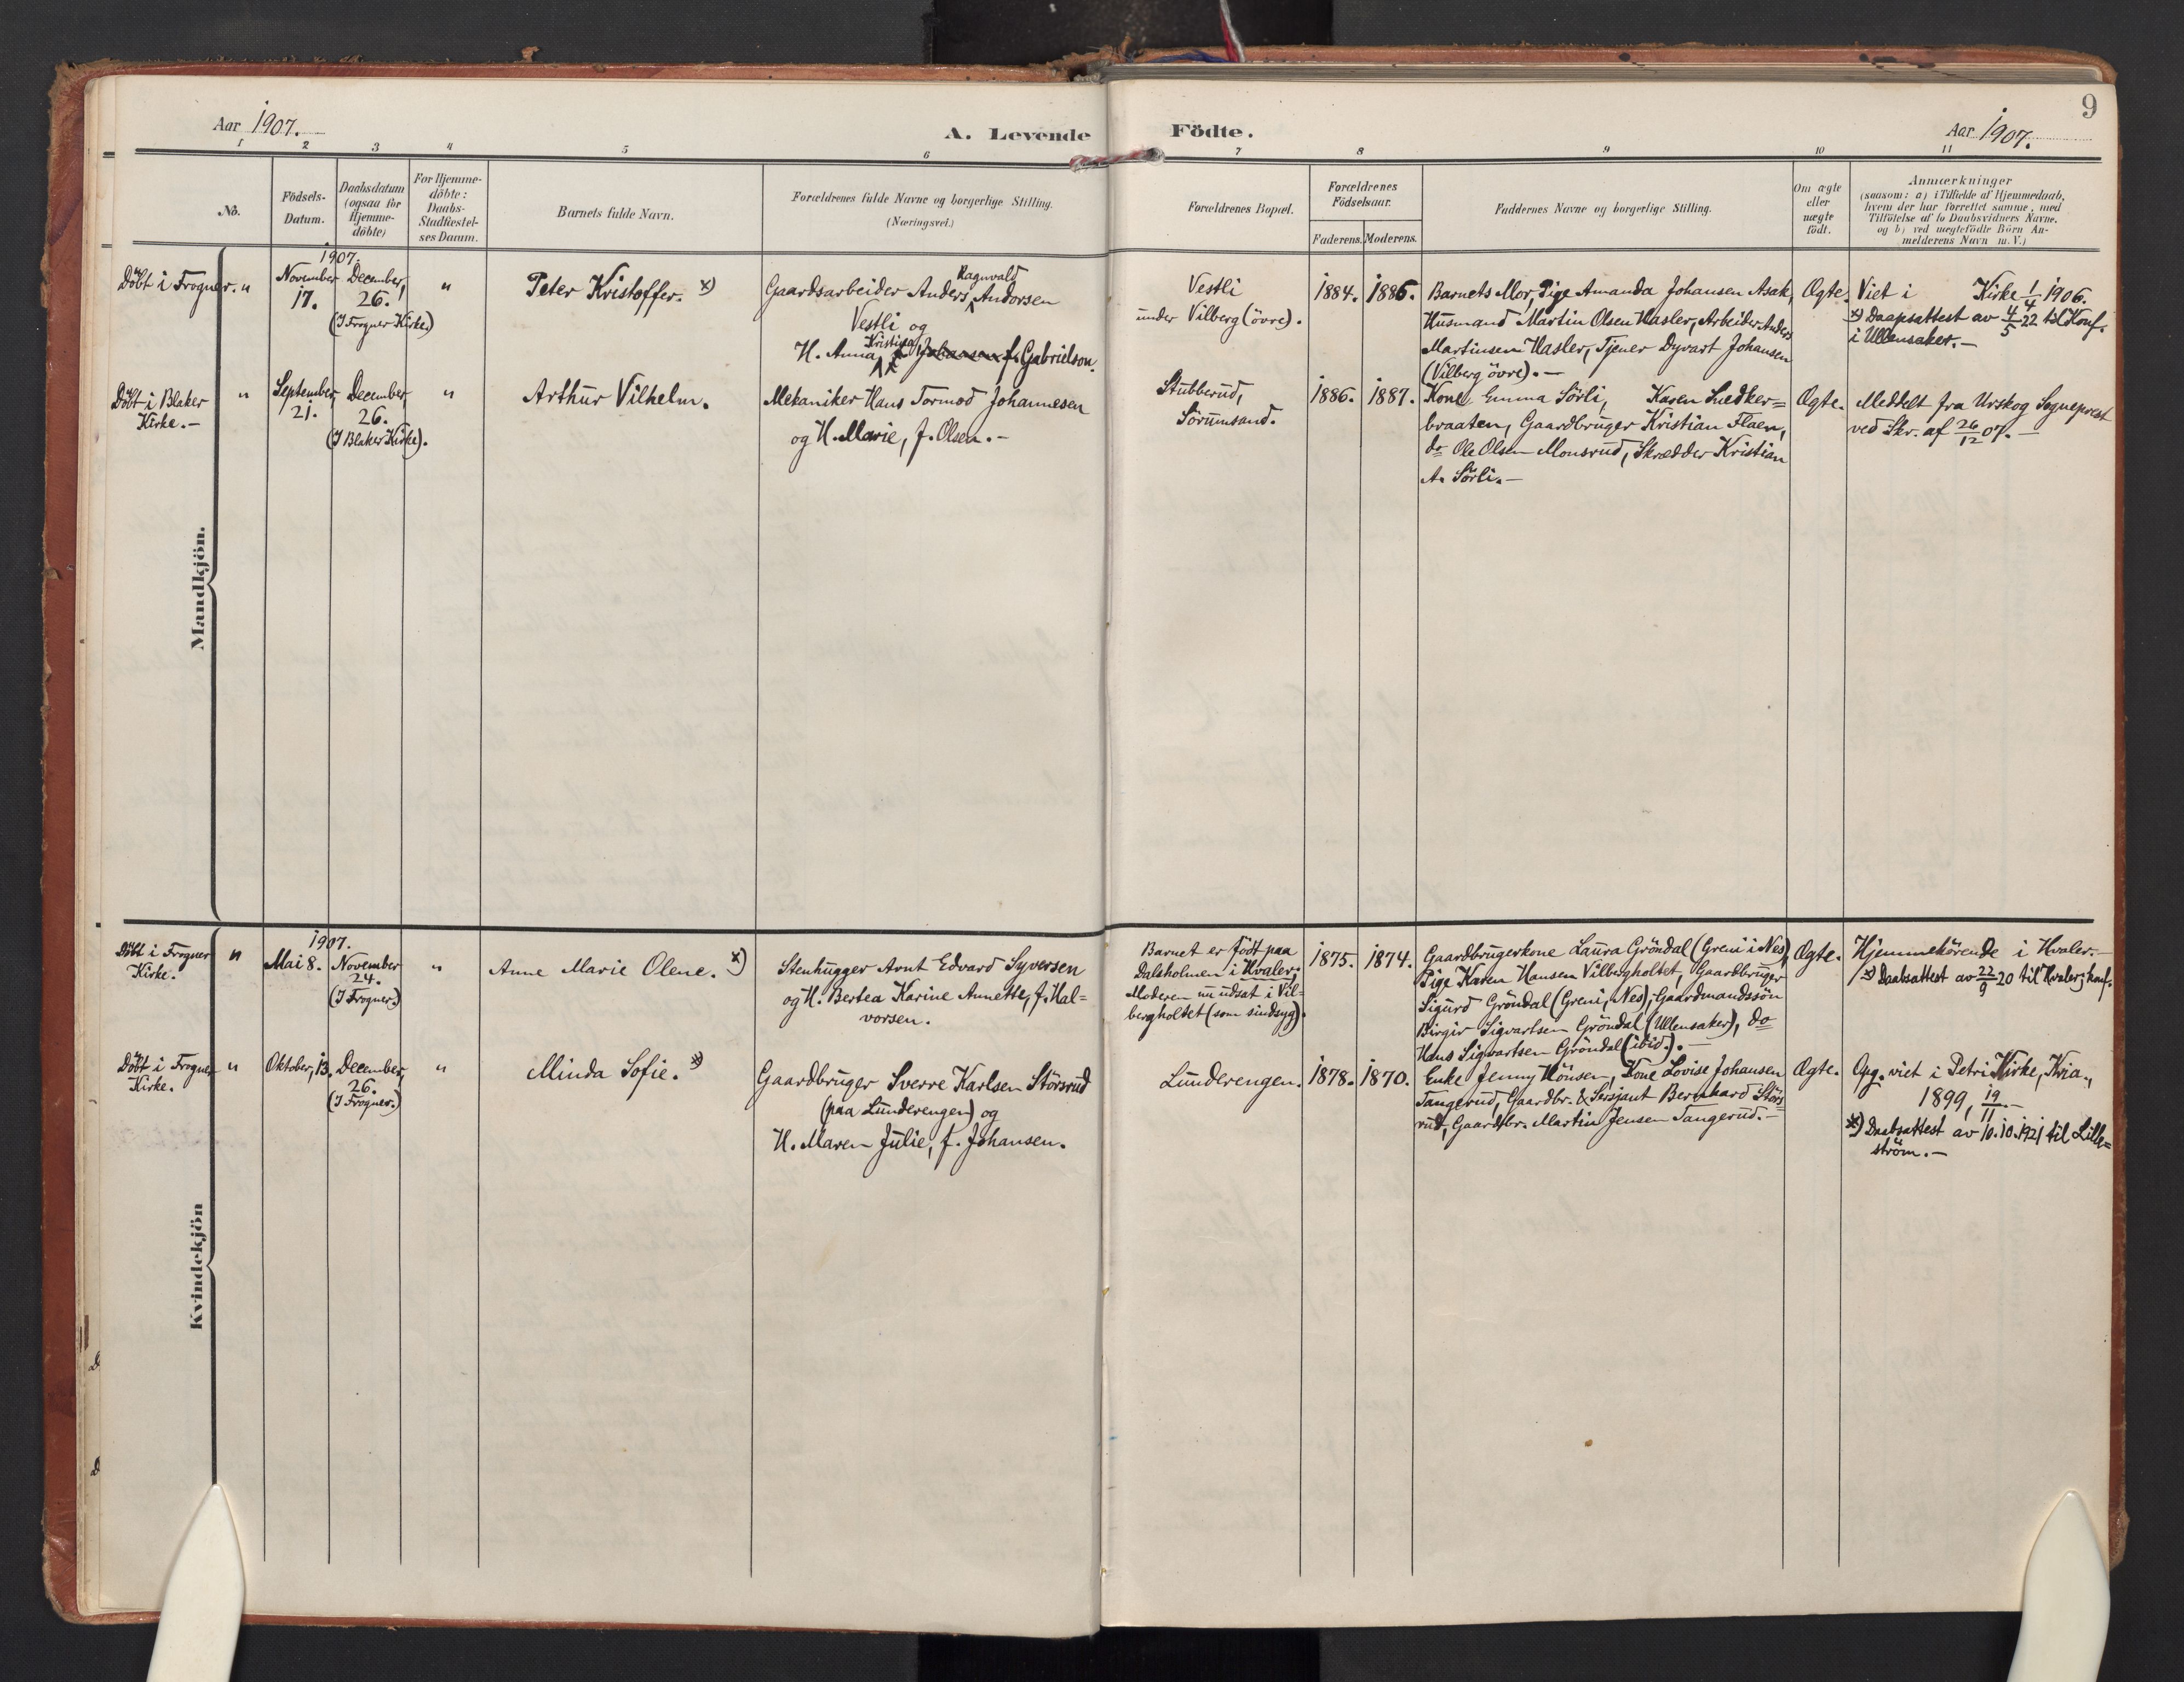 9
Aar 1907.
A. Levende
Födte.
Aar 1907.
1 2 3 4 5 6 7 8 9 10 11
No.
Födsels-
Datum.
Daabsdatum
(ogsaa for
Hjemme-
döbte)
For Hjemme-
döbte:
Daabs-
Stadfæstel-
ses Datum.
Barnets fulde Navn.
Forældrenes fulde Navne og borgerlige Stilling.
(Næringsvei.)
Forældrenes Bopæl.
Forældrenes
Födselsaar.
Faderens. Moderens.
Faddernes Navne og borgerlige Stilling.
Om ægte
eller
uægte
födt.
Anmærkninger
(saasom: a) i Tilfælde af Hjemmedaab,
hvem der har forrettet samme, med
Tilföielse af to Daabsvidners Navne,
og b) ved uægtefödte Börn An-
melderens Navn m. V.)
Mandkjön.
1907.
Döbt i Frogner. "
November
17.
December,
26.
(I Frogner Kirke.)
"
Peter Kristoffer. x)
Ragnvald
Gaardsarbeider Anders Andorsen
Vestli og
Kristina
H. Anna f. Johansen f. Gabrielson.
Vestli
under Vilberg (övre).
1884. 1886.
Barnets Mor, Pige Amanda Johansen Asak,
Husmand Martin Olsen Hasler, Arbeider Anders
Martinsen Hasler, Tjener Dyvart Johansen
(Vilberg övre).—
Ægte.
Viet i Kirke 1/4 1906.
x) Daapsattest av 4/5 22 til Konf.
i Ullensaker.—
Döbt i Blaker
Kirke.—
"
September,
21.
December,
26.
(I Blaker Kirke).
"
Arthur Vilhelm.
Mekaniker Hans Tormod Johannesen
og H. Marie, f. Olsen.—
Stubberud,
Sörumsand.
1886. 1887.
Kone Emma Sörli, Karen Snedker=
braaten, Gaardbruger Kristian Flaen,
do Ole Olsen Monsrud, Skrædder Kristian
A. Sörli.—
Ægte.
Meddelt fra Urskog Sogneprest
ved Skr. af 26/12 07.—
Kvindekjön
1907.
Döbt i Frogner
Kirke.
"
Mai 8.
November
24.
(I Frogner.)
"
Anne Marie Olene. x)
Stenhugger Arnt Edvard Syversen
og H. Bertea Karine Annette, f. Hal=
vorsen.
Barnet er födt paa
Dalsholmen i Hvaler.
Moderen nu udsat i Vil-
bergholtet (som sindsyg).
1875. 1874.
Gaardbrugerkone Laura Gröndal (Greni i Nes),
Pige Karen Hansen Vilbergholtet, Gaardbruger
Sigurd Gröndal (Greni, Nes), Gaardmandssön
Birger Sigvartsen Gröndal (Ullensaker), do
Hans Sigvartsen Gröndal (ibid.).—
Ægte.
Hjemmehörende i Hvaler.—
x) Daabsattest av 22/9 20 til Hvaler; konf.
Döbt i Frogner
Kirke.
"
Oktober, 13.
December,
26.
(I Frogner.)
"
Minda Sofie. x)
Gaardbruger Sverre Karlsen Störsrud
(paa Lunderengen) og
H. Maren Julie, f. Johansen.
Lunderengen.
1878. 1870.
Enke Jenny Hönsen, Kone Lovise Johansen
Tangerud, Gaardbr. & Sersjant Bernhard Störs=
rud, Gaardbr. Martin Jensen Tangerud.—
Ægte.
Opg. viet i Petri Kirke, Kria.,
1899, 19/11.—
x) Daabsattest av 10.10.1921 til Lille=
ström.—